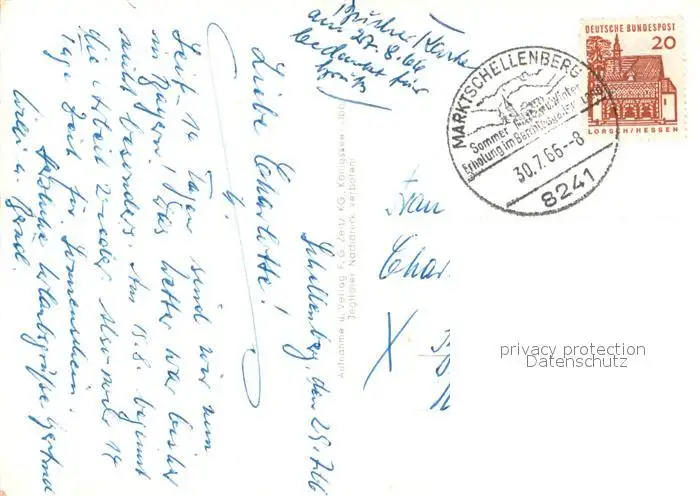 Schellenberg, den 29.7.66
Liebe Charlotte!
Seit 14 Tagen sind wir nun
in Bayern! Das Wetter war bisher
nicht besonders. Am 15.8. beginnt
die Arbeit wieder. Also noch 14
Tage Zeit für Sonnenschein.
Herzliche Urlaubsgrüße Gertrud
Willi u. Gerd.
am 27.8.66
bedankt für
Aufnahme u. Verlag F. G. Zeitz KG, Königssee
Jeglicher Nachdruck verboten!
Frau
Char
X
MARKTSCHELLENBERG
Sommer Winter
Erholung im Berchtesgadener Land
30.7.66--8
8241
DEUTSCHE BUNDESPOST
20
LORSCH/HESSEN
privacy protection
Datenschutz